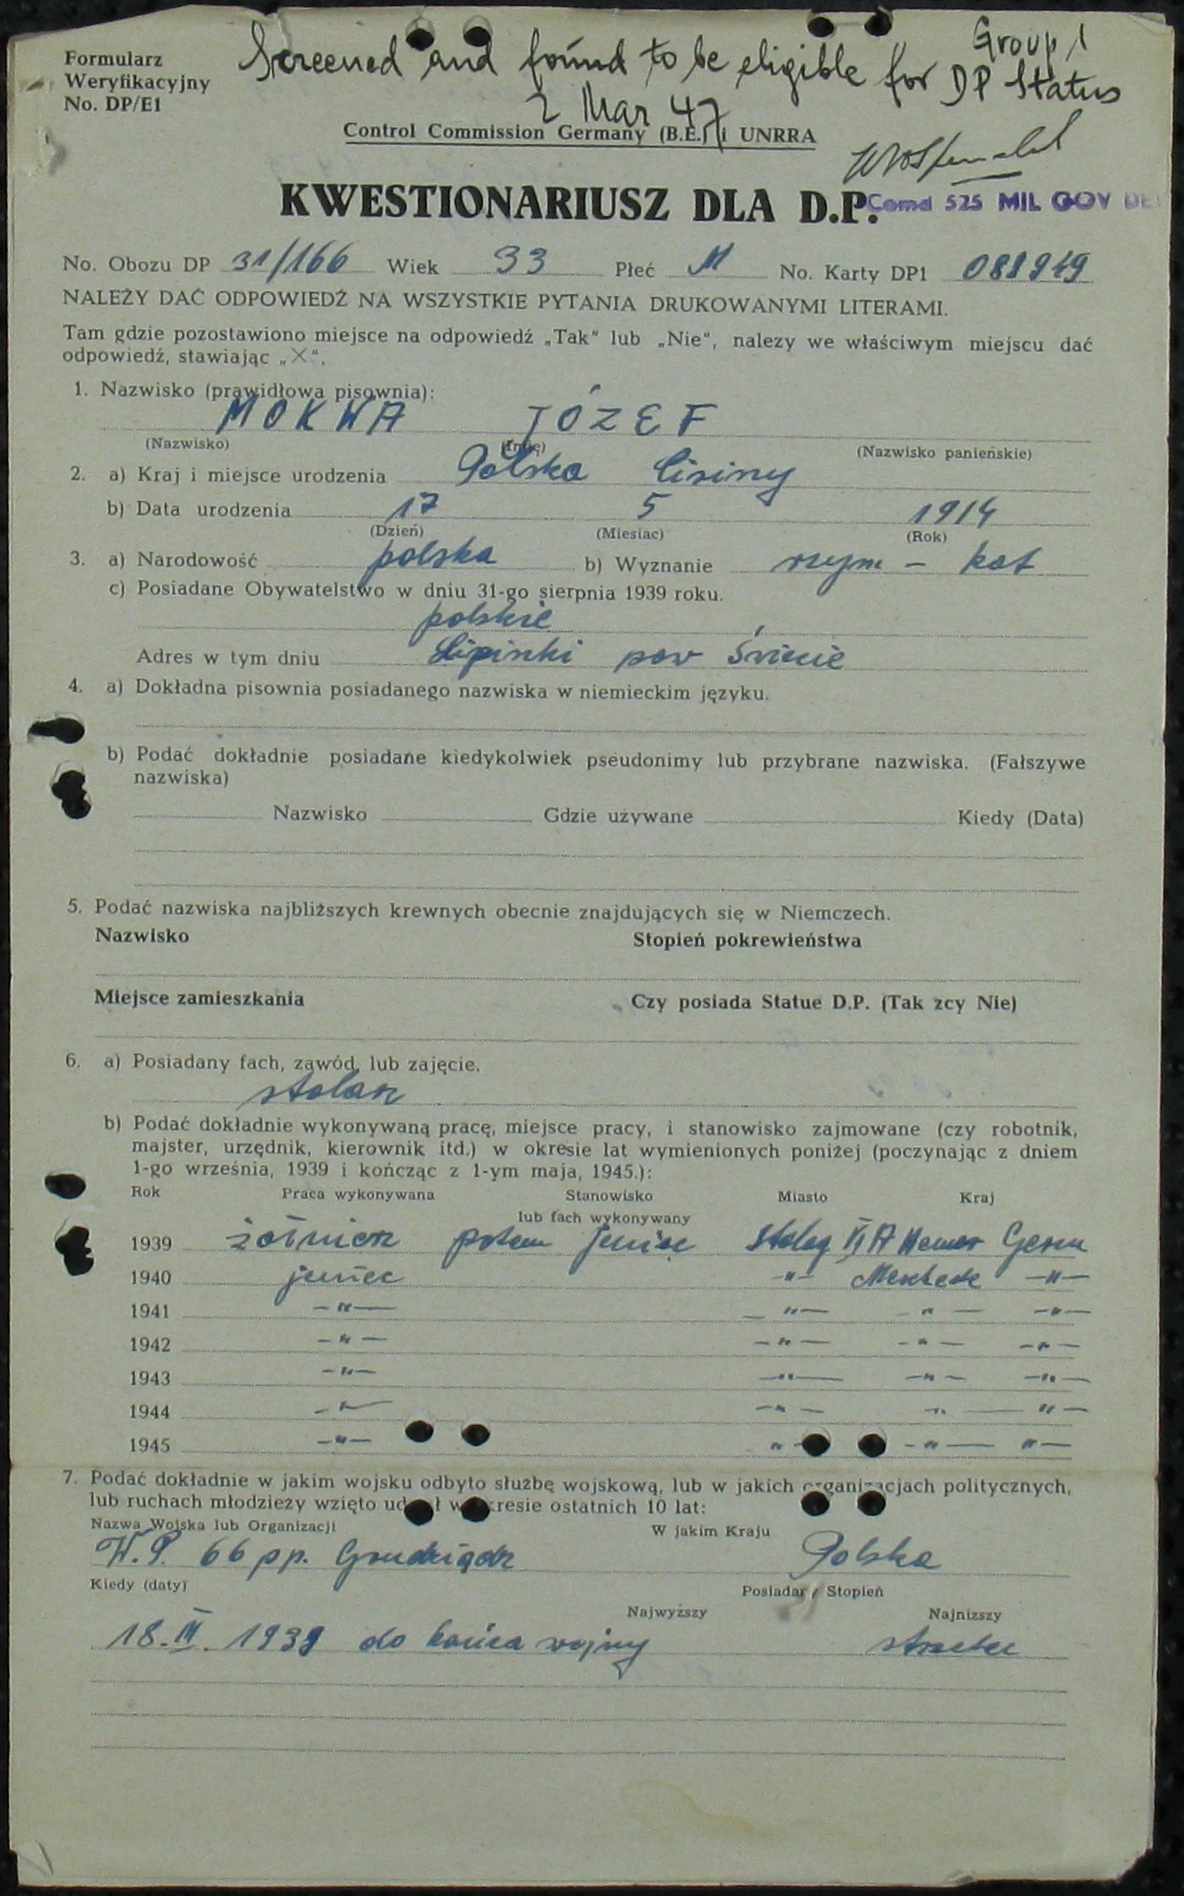 Formularz
Weryfikacyjny
No. DP/E1
Group 1
Screened and found to be eligible for DP Status
2 Mar 47
Control Commission Germany (B.E.) i UNRRA
Comd 525 MIL GOV DE
KWESTIONARIUSZ DLA D.P.
No. Obozu DP 31/166 Wiek 33 Płeć M No. Karty DP1 088949
NALEŻY DAĆ ODPOWIEDŹ NA WSZYSTKIE PYTANIA DRUKOWANYMI LITERAMI.
Tam gdzie pozostawiono miejsce na odpowiedź „Tak" lub „Nie", nalezy we właściwym miejscu dać
odpowiedź, stawiając „X".
1. Nazwisko (prawidłowa pisownia):
MOKWA JÓZEF
(Nazwisko) (Imię) (Nazwisko panieńskie)
2. a) Kraj i miejsce urodzenia Polska Lisiny
b) Data urodzenia 17 5 1914
(Dzień) (Miesiac) (Rok)
3. a) Narodowość polska b) Wyznanie rzym - kat
c) Posiadane Obywatelstwo w dniu 31-go sierpnia 1939 roku.
polskie
Adres w tym dniu Lipinki pow Świecie
4. a) Dokładna pisownia posiadanego nazwiska w niemieckim języku.
b) Podać dokładnie posiadane kiedykolwiek pseudonimy lub przybrane nazwiska. (Fałszywe
nazwiska)
Nazwisko Gdzie używane Kiedy (Data)
5. Podać nazwiska najbliższych krewnych obecnie znajdujących się w Niemczech.
Nazwisko Stopień pokrewieństwa
Miejsce zamieszkania Czy posiada Statue D.P. (Tak zcy Nie)
6. a) Posiadany fach, zawód, lub zajęcie.
stolarz
b) Podać dokładnie wykonywaną pracę, miejsce pracy, i stanowisko zajmowane (czy robotnik,
majster, urzędnik, kierownik itd.) w okresie lat wymienionych poniżej (poczynając z dniem
1-go września, 1939 i kończąc z 1-ym maja, 1945.):
Rok Praca wykonywana Stanowisko Miasto Kraj
lub fach wykonywany
1939 żołnierz potem jeniec Stalag VI A Hemer Germ
1940 jeniec -"- -"-
1941 -"- -"- -"- -"-
1942 -"- -"- -"- -"-
1943 -"- -"- -"- -"-
1944 -"- -"- -"- -"-
1945 -"- -"- -"- -"-
7. Podać dokładnie w jakim wojsku odbyto służbę wojskową, lub w jakich organizacjach politycznych,
lub ruchach młodzieży wzięto udział w okresie ostatnich 10 lat:
Nazwa Wojska lub Organizacji W jakim Kraju
W.P. 66 pp. Grudziądz Polska
Kiedy (daty) Posiadany Stopień
Najwyższy Najnizszy
18. III. 1939 do końca wojny strzelec